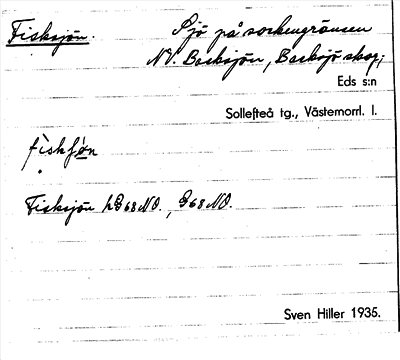 Fisksjön. Sjö på sockengränsen
NV. Backsjön, Backsjö skog;
Eds s:n
Sollefteå tg., Västemorrl. l.
fiskʃøn
Fisksjön hG68NO., G68NO.
Sven Hiller 1935.